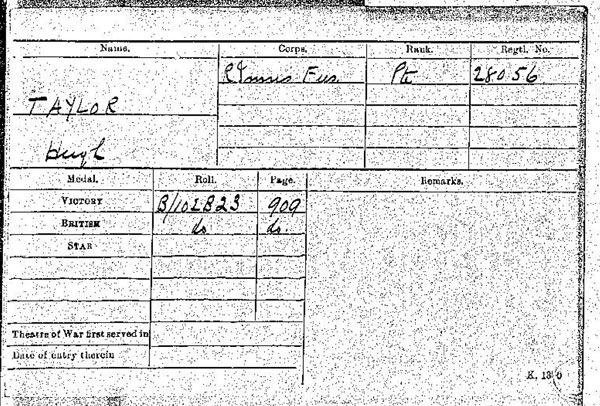 Name. Corps. Rank. Regtl. No.
R Innis Fus. Pte 28056
TAYLOR
Hugh
Medal. Roll. Page. Remarks.
VICTORY B/102B23 909
BRITISH do do
STAR
Theatre of War first served in
Date of entry therein
K. 1380